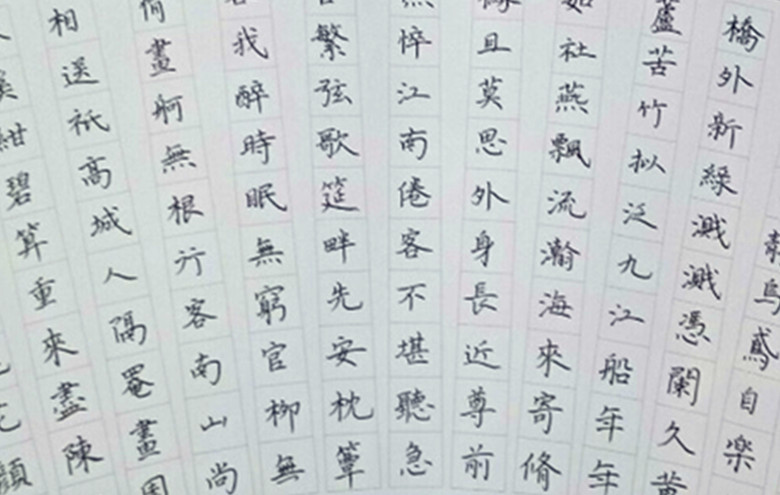 靜烏鳶自楽
橋外新緑濺濺憑闌久黃
蘆苦竹拟泛九江船年年
如社燕飄流瀚海來寄脩
椽且莫思外身長近尊前
悴江南倦客不堪聽急
繁弦歌筵畔先安枕簟
我醉時眠無窮官柳無
畫舸無根行客南山尚
相送祇高城人隔罨畫園
溪紺碧算重來盡陳
顔